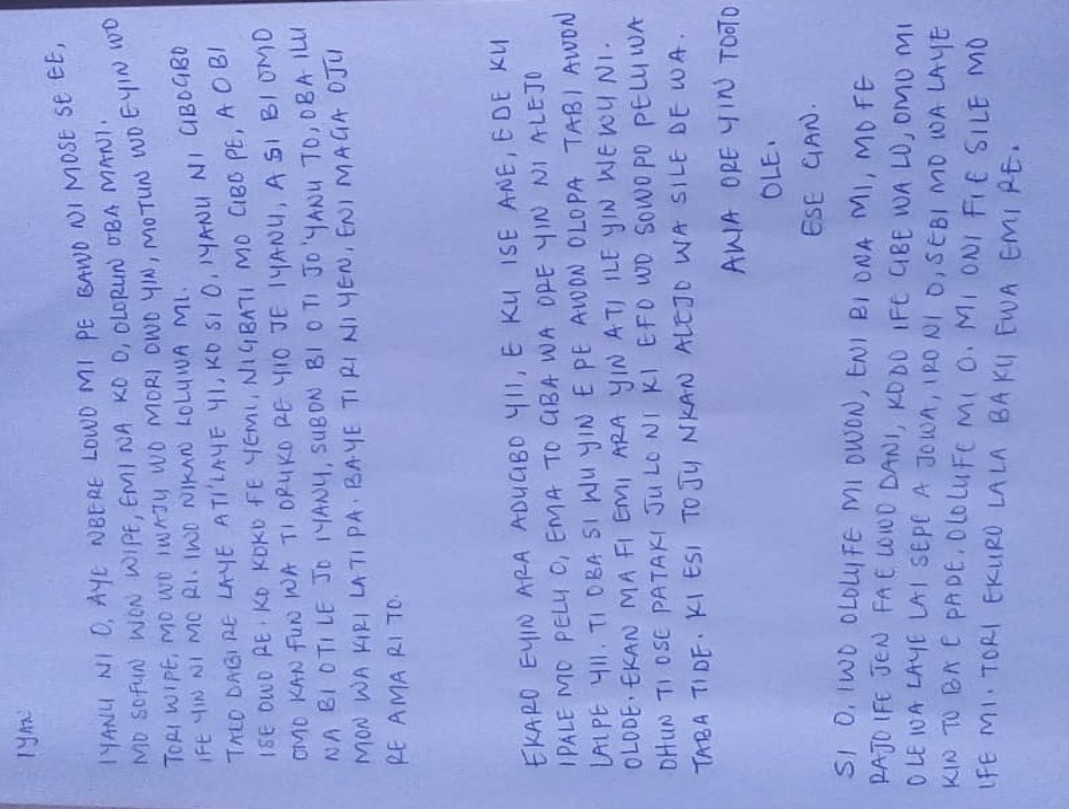 IYAN
IYANU NI O, AYE NBERE LOWO MI PE BAWO NI MOSE SE EE,
MO SOFUN WON WIPE, EMI NA KO O, OLORUN OBA MANI.
TORI WIPE, MO WO IWAJU WO MORI OWO YIN, MOTUN WO EYIN WO
IFE YIN NI MO RI. IWO NIKAN LOLUWA MI.
TALO DABI RE LAYE ATI'LAYE YI, KO SI O, IYANU NI GBOGBO
ISE OWO RE. KO KOKO FE YEMI, NIGBATI MO GBO PE, A O BI
OMO KAN FUN WA TI ORUKO RE YIO JE IYANU, A SI BI OMO
NA BI OTI LE JO IYANU, SUBON BI O TI JO 'YANU TO, OBA ILU
MON WA KIRI LATI PA. BAYE TI RI NI YEN, ENI MAGA OJU
RE AMA RI TO.
EKARO EYIN ARA ADUGBO YII, E KU ISE ANE, EDE KU
IPALE MO PELU O, EMA TO GBA WA ORE YIN NI ALEJO
LAIPE YII. TI OBA SI WU YIN E PE AWON OLOPA TABI AWON
OLODE. EKAN MA FI EMI ARA YIN ATI ILE YIN WEWU NI.
OHUN TI OSE PATAKI JU LO NI KI EFO WO SOWOPO PELU WA
TABA TI DE. KI ESI TOJU NKAN ALEJO WA SILE DE WA.
AWA ORE YIN TOOTO
OLE.
ESE GAN.
SI O, IWO OLOLUFE MI OWON, ENI BI ONA MI, MO FE
RAJO IFE JEN FA E LOWO DANI, KODO IFE GBE WA LO, OMO MI
O LE WA LAYE LAI SEPE A JOWA, IRO NI O, SEBI MO WA LAYE
KIN TO BA E PADE. OLOLUFE MI O. MI ONI FI E SILE MO
IFE MI. TORI EKURO LALA BAKU EWA EMI RE.